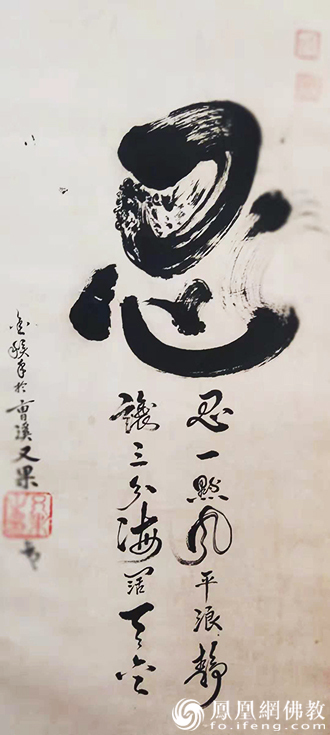 忍
忍一點風平浪靜
讓三分海闊天空
金猴年於曹溪又果
鳳凰網佛教
fo.ifeng.com